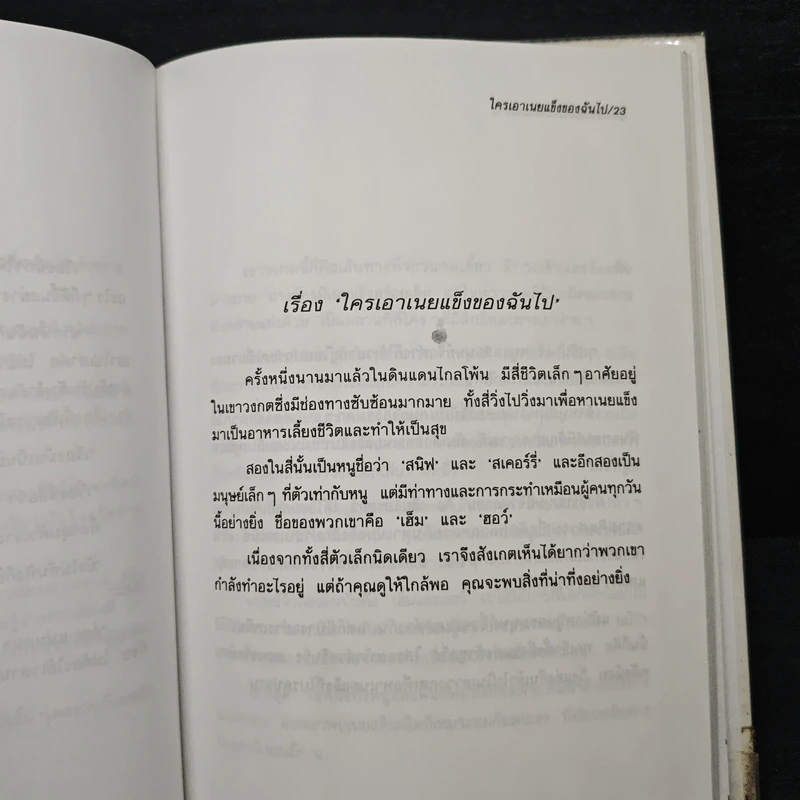 ใครเอาเนยแข็งของฉันไป/23
เรื่อง 'ใครเอาเนยแข็งของฉันไป'
ครั้งหนึ่งนานมาแล้วในดินแดนไกลโพ้น มีสี่ชีวิตเล็กๆ อาศัยอยู่
ในเขาวงกตซึ่งมีช่องทางซับซ้อนมากมาย ทั้งสี่วิ่งไปวิ่งมาเพื่อหาเนยแข็ง
มาเป็นอาหารเลี้ยงชีวิตและทำให้เป็นสุข
สองในสี่นั้นเป็นหนูชื่อว่า 'สนิฟ' และ 'สเคอร์รี่' และอีกสองเป็น
มนุษย์เล็กๆ ที่ตัวเท่ากับหนู แต่มีท่าทางและการกระทำเหมือนผู้คนทุกวัน
นี้อย่างยิ่ง ชื่อของพวกเขาคือ 'เฮ็ม' และ 'ฮอว์'
เนื่องจากทั้งสี่ตัวเล็กนิดเดียว เราจึงสังเกตเห็นได้ยากว่าพวกเขา
กำลังทำอะไรอยู่ แต่ถ้าคุณดูให้ใกล้พอ คุณจะพบสิ่งที่น่าทึ่งอย่างยิ่ง